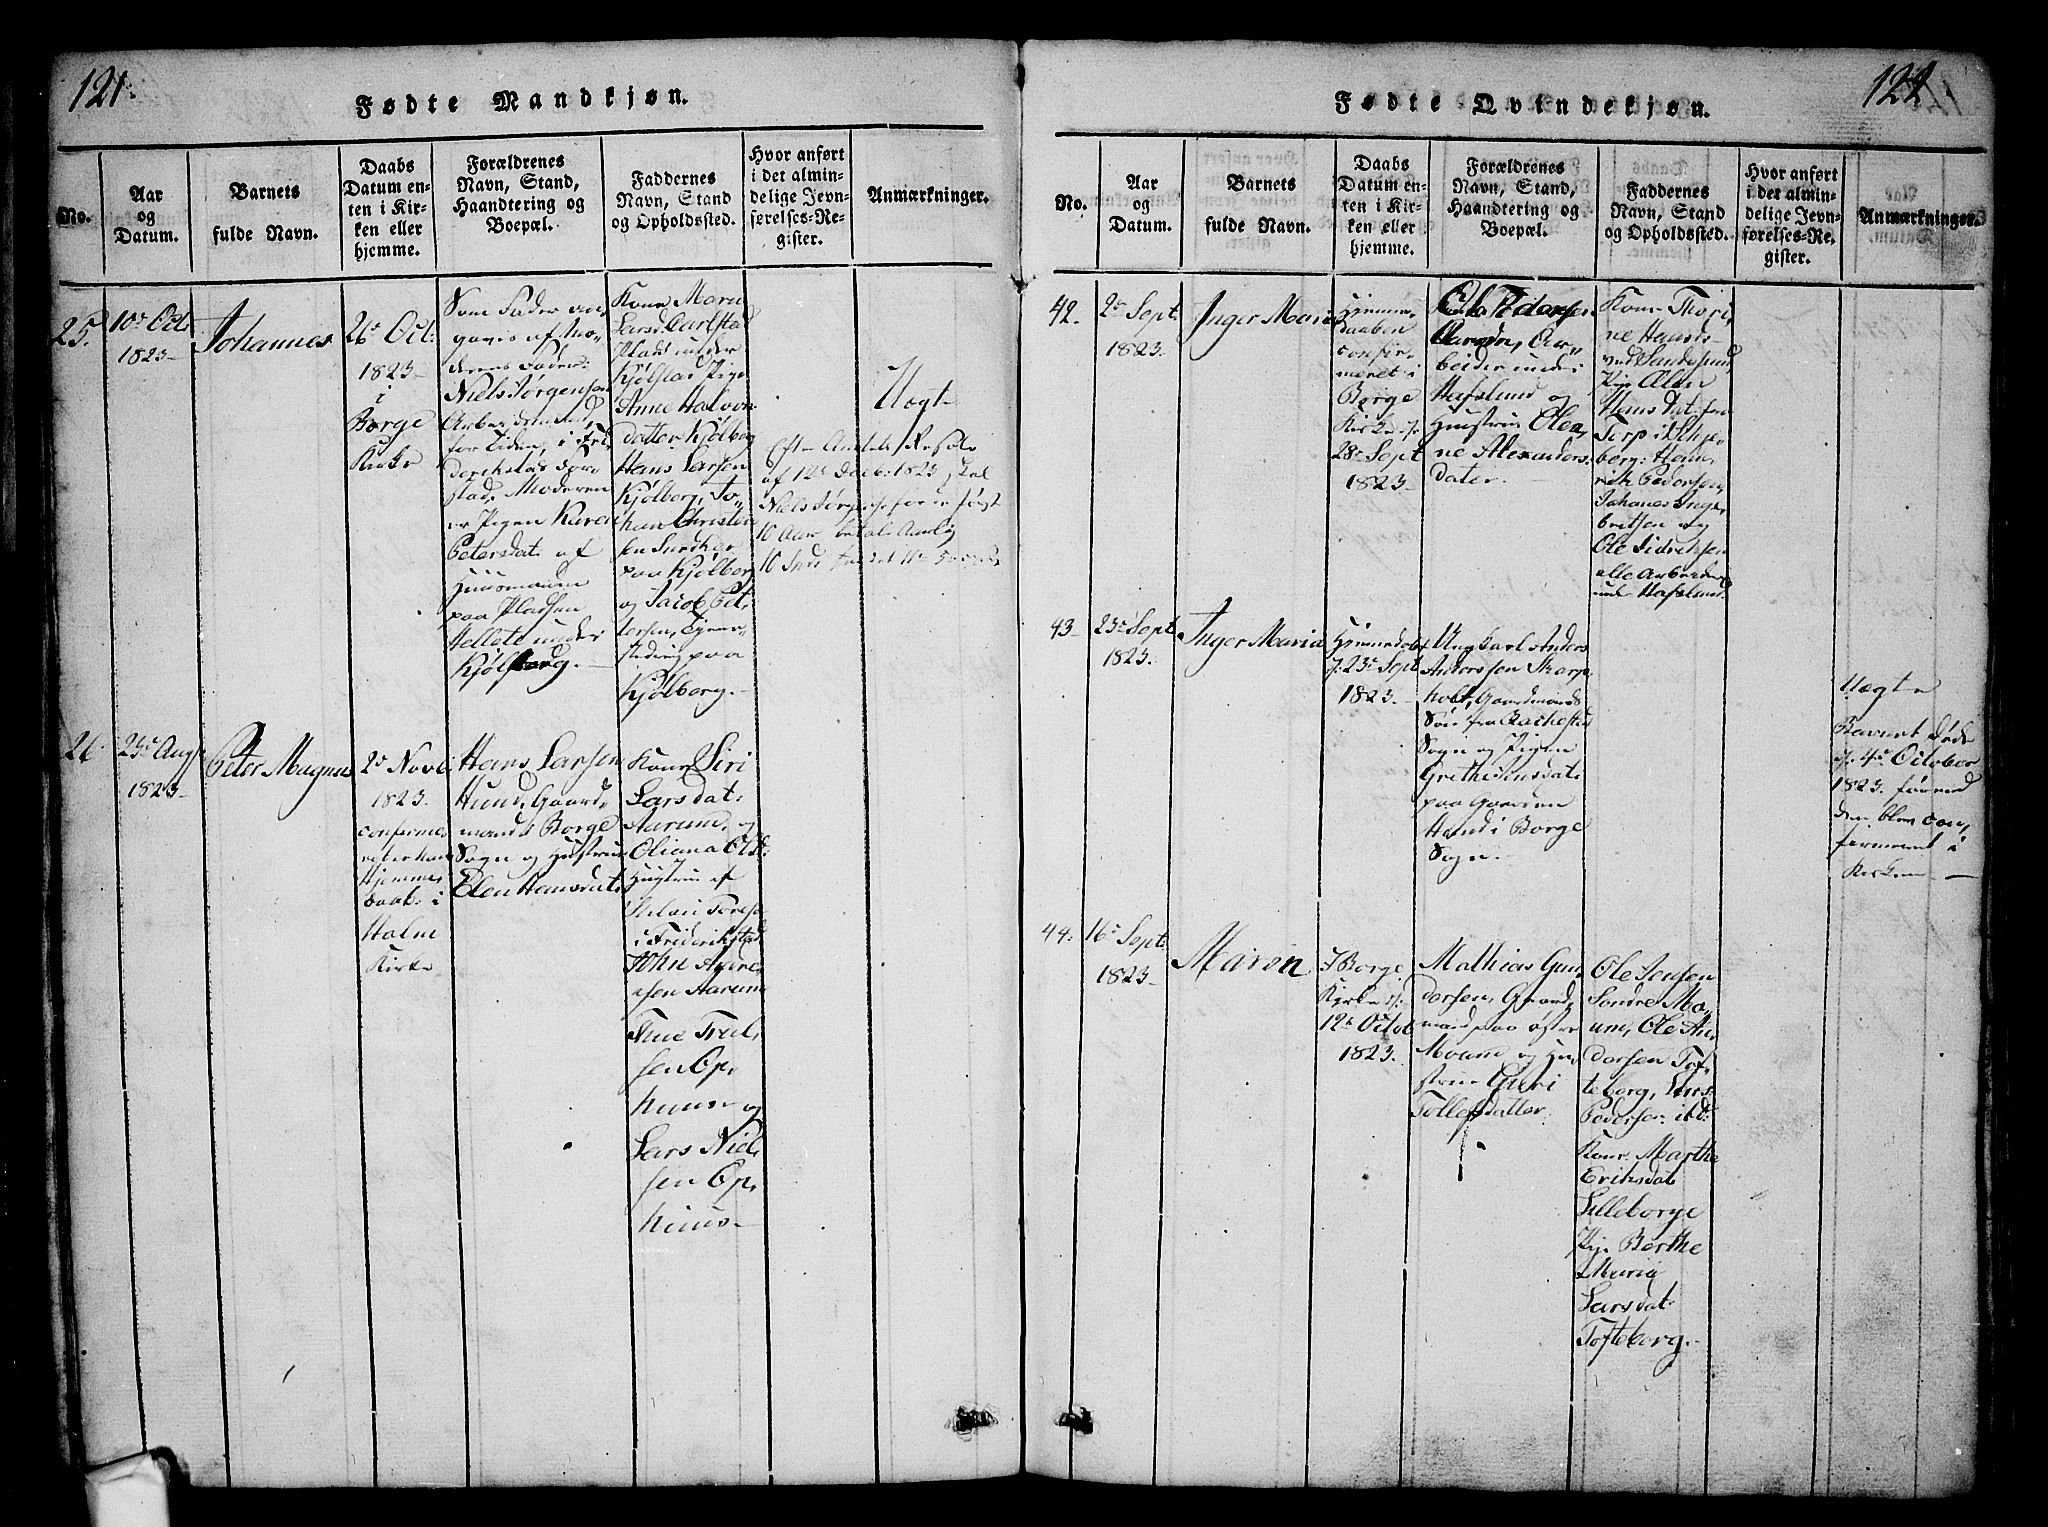 121.
Fødte Mandkjøn.
No.
Aar
og
Datum.
Barnets
fulde Navn.
Daabs
Datum en-
ten i Kir-
ken eller
hjemme.
Forældrenes
Navn, Stand,
Haandtering og
Boepæl.
Faddernes
Navn, Stand
og Opholdssted.
Hvor anført
i det almin-
delige Jevn-
førelses-Re-
gister.
Anmærkninger.
25.
10de Oct.
1823
Johannes
26de Oct:
1823
i
Borge
Kirke
Som Fader
Niels Jørgensen
Moderen
er Pigen Karen
Petersdat: af
Huusmann
paa Pladsen
Hellete under
Kjølberg.
Kone Maren
Larsd. Carlstad
Plads under
Kjølstad Pige
Anne Halvors
datter Kjølberg
Hans Larsen
Kjølberg, Jo,,
han Christen
sen
paa Kjølberg
og Jacob Pet,
tersen,
paa
Kjølberg.
Uægte
af 12te Decb: 1823 skal
10 Aar betale Aarlig
26.
23de Augs.
1823
Peter Magnus
2de Novb:
1823.
confirme,
Hjemme
daab: i
Holme
Kirke
Hans Larsen
Hund, Gaard,
mand i Borge
Sogn og Hustrue
Elen Hansdat:
Kone Siri
Larsdat:
Aarum, og
Oliana Olsd:
Hustrue af
i Friderikstad
John Andre,
asen Aarum
Thue Truls,
sen Op,
huus og
Lars Niel,
sen Op,
huus
122.
Fødte Qvindekjøn.
No.
Aar
og
Datum.
Barnets
fulde Navn.
Daabs
Datum en-
ten i Kir-
ken eller
hjemme.
Forældrenes
Navn, Stand,
Haandtering og
Boepæl.
Faddernes
Navn, Stand
og Opholdssted.
Hvor anført
i det almin-
delige Jevn-
førelses-Re-
gister.
Anmærkninger.
42.
2de Sept.
1823.
Inger Maria
Hjemme
daaben
confir,
meret i
Borge
Kirke d.
28de Sept
1823
Ar,,
beider under
Hafslund og
Hustrue Olea,
ne Alexanders,
dater.
Kone Thori,
ne Haards
ved Sandesund
Pige Olea
Hans dat: fra
Torp i Skje,
berg: Hen,
rik Pedersen,
Johanes Inge,
britsen og
Ole Didriksen
alle Arbeidere
under Hafslund.
43
23de Sept.
1823.
Inger Maria
Hjemmedøbt
d. 23de Sept
1823
Ung Karl Anders
Anderssen Skarp,
holt, Gaardmands
Søn fra Rackestad
Sogn og Pigen
Grethe Jensdat:
paa Gaarden
Hund i Borge
Sogn.
Uægte
Barnet døde
d. 4de October
1823. førend
den blev con,
firmeret i
Kirken
44.
16de Sept:
1823
Maren
I Borge
Kirke d.
12te Octob
1823.
Mathias Gun,
dersen, Gaard,
mand paa øster
Moum og Hu,
strue Guri
Tollefsdatter.
Ole Jensen
Søndre Mo,
um, Ole An,
dersen Tof,
teborg, Lars
Pedersen ibd:
Kone Marthe
Eriksdat
Lilleborge
Pig. Berthe
Maria
Larsdat:
Tofteborg.